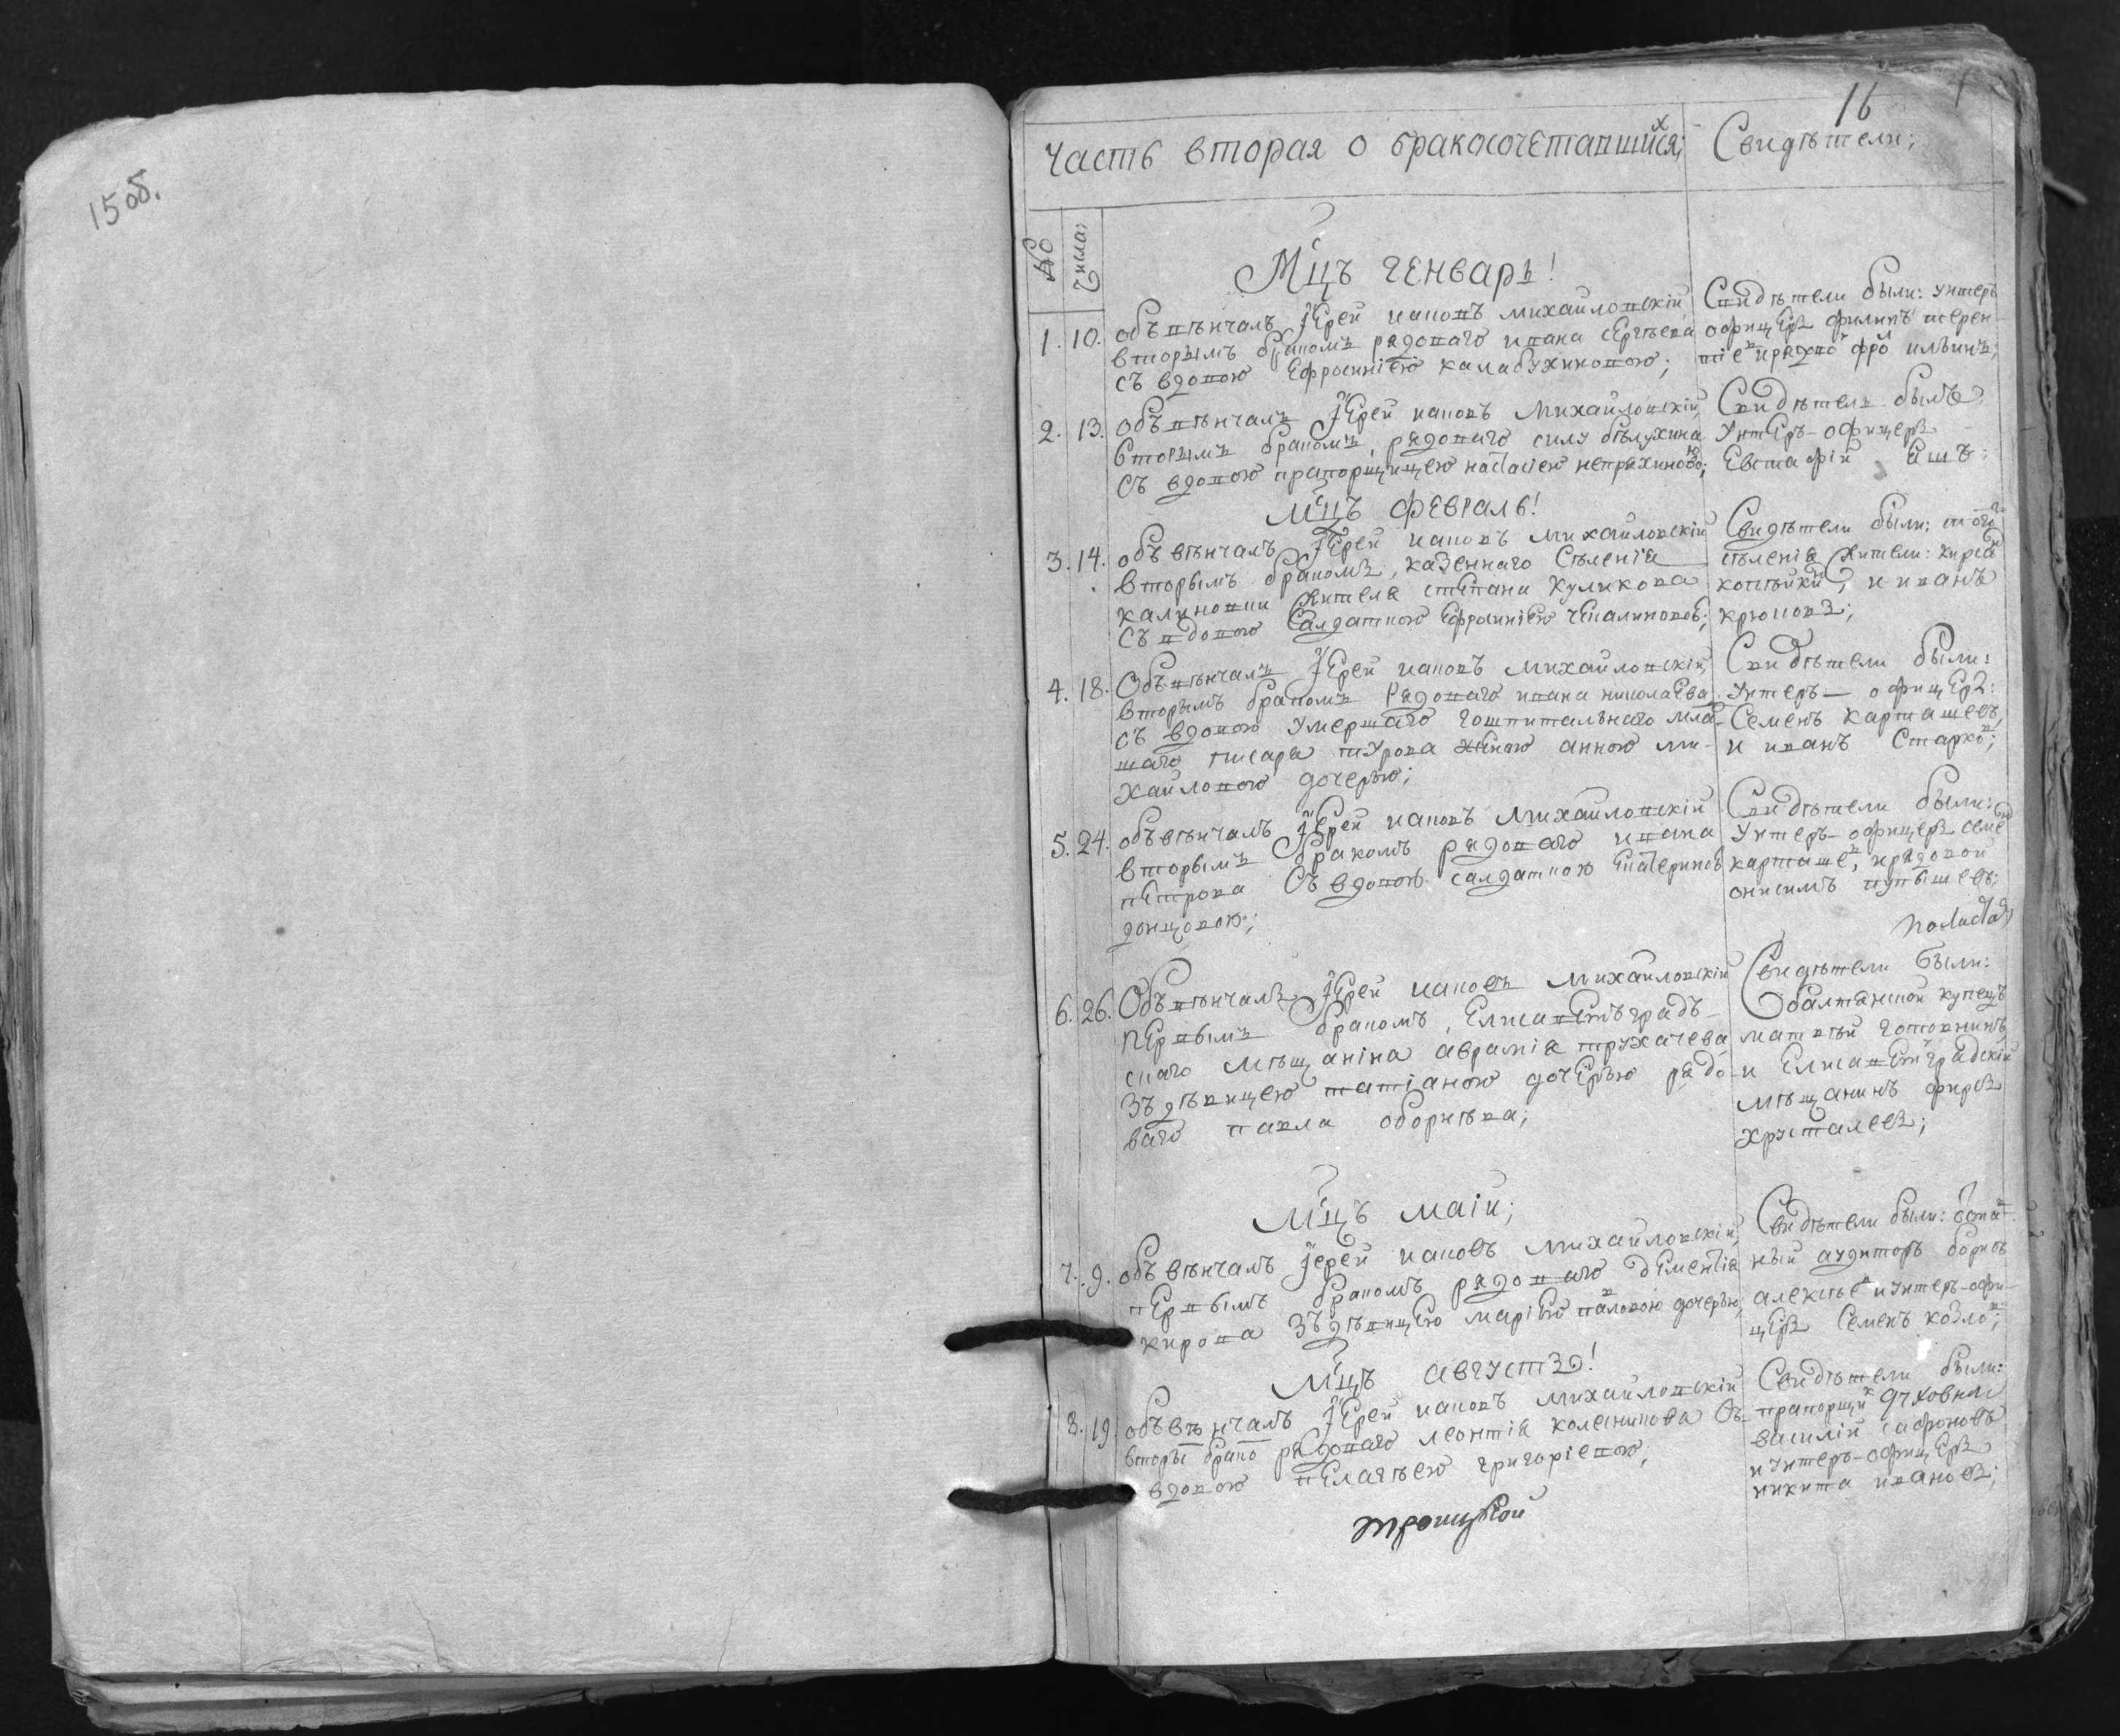 15 об.
16
Часть вторая о бракосочетавшихся;
Свидѣтели;
№
Числа;
Мцъ Генварь!
1. 10. обвѣнчалъ Іерей иаковъ михайловскій
вторымъ бракомъ рядоваго ивана сергѣева
съ вдовою Ефросиніею калабухиновою;
Свидѣтели были: унтеръ
офицеръ филипъ
ильинъ;
2. 13. объвѣнчалъ Іерей иаковъ Михайловскій
вторымъ бракомъ, рядоваго силу бѣлухина
съ вдовою прапорщицею настасіею непряхиновою;
Свидѣтель былъ
Унтеръ-офицеръ
Евстафій Ешъ:
мцъ февраль!
3. 14. объвѣнчалъ Іерей иаковъ михайловскій
вторымъ бракомъ, казеннаго Сѣленія
калиновки жителя стѣпана куликова
съ вдовою Салдаткою Ефросиніею
Свидѣтели были: того
сѣленія жители: кирсан
копѣйкин, и иванъ
крюковъ;
4. 18. Объвѣнчалъ Іерей иаковъ михайловскій
вторымъ бракомъ Рядоваго ивана николаева
съ вдовою умершаго гошпитальнаго млад-
шаго писаря турова жѣною анною ми-
хайловою дочерью;
Свидѣтели были:
Унтеръ-офицеръ:
Семенъ карташевъ,
и иванъ Старков;
5. 24. объвѣнчалъ Іерей иаковъ михайловскій
вторымъ бракомъ рядоваго ивана
пѣтрова Съ вдовою салдаткою Екатериною
донцовою;
Свидѣтели были:
Унтеръ-офицеръ семен
карташев, и рядовой
онисимъ пупышевъ;
6. 26. Объвѣнчалъ Іерей иаковъ михайловскій
Первымъ бракомъ, Елисаветъградъ-
скаго мѣщаніна аврамія трухачева
Зъ дѣвицею татіаною дочерью рядо-
ваго павла оборнѣва;
Свидѣтели были:
балтянской купецъ
матвѣй готовкинъ
и Елисаветградскій
мѣщанинъ фирсъ
хрусталевъ;
Мцъ маій;
7. 9. объвѣнчалъ Іерей иаковъ михайловскій
пѣрвымъ бракомъ рядоваго дѣментія
кирова Зъ дѣвицею маріею павловою дочерью;
Свидѣтели были:
ный аудиторъ борисъ
алексѣев и унтеръ-офи-
церъ Семенъ козлов;
Мцъ августъ!
8. 19. объвѣнчалъ Іерей иаковъ михайловскій
вторым брако рядоваго леонтія колесникова Съ
вдовою пелагѣею григоріевою;
Свидѣтели были:
прапорщик духовной
василій сафоновъ
и унтеръ-офицеръ
никита ивановъ;
троицкой